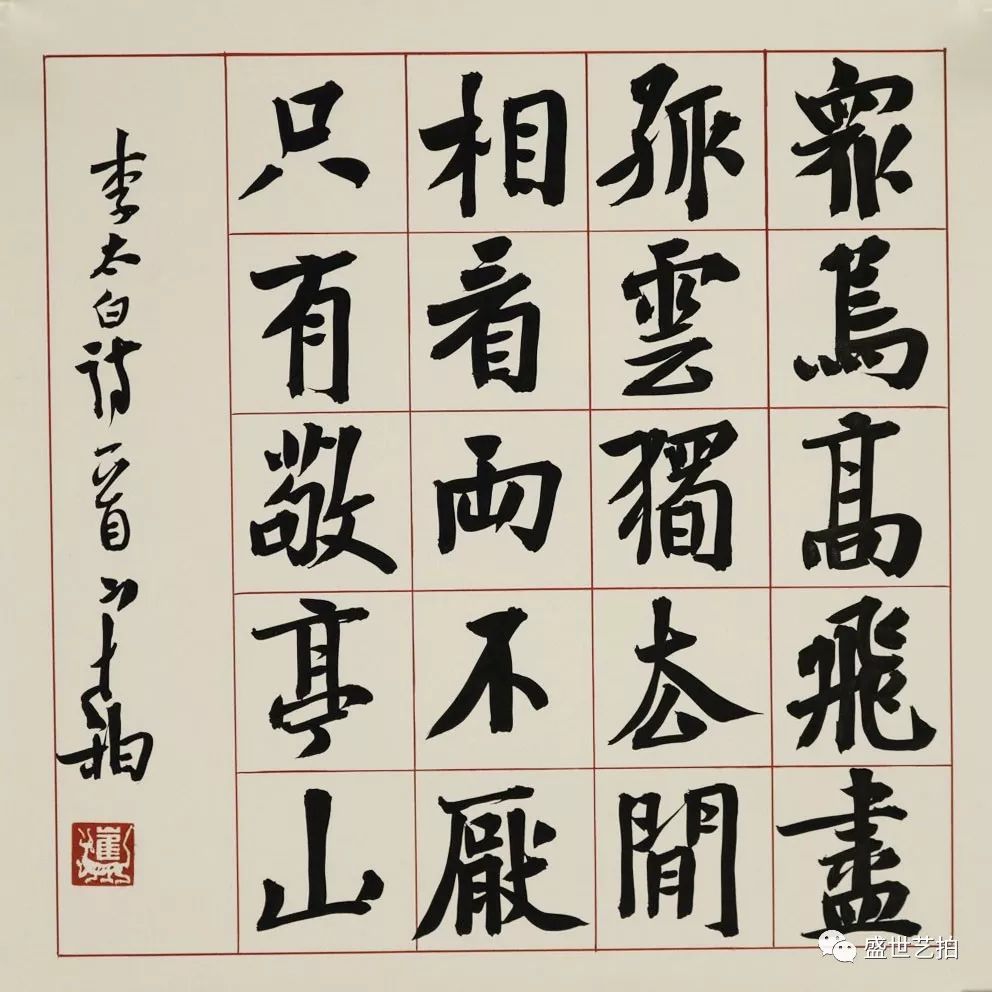 眾鳥髙飛盡
孤雲獨厺閒
相看兩不厭
只有敬亭山
李太白詩一首
盛世艺拍